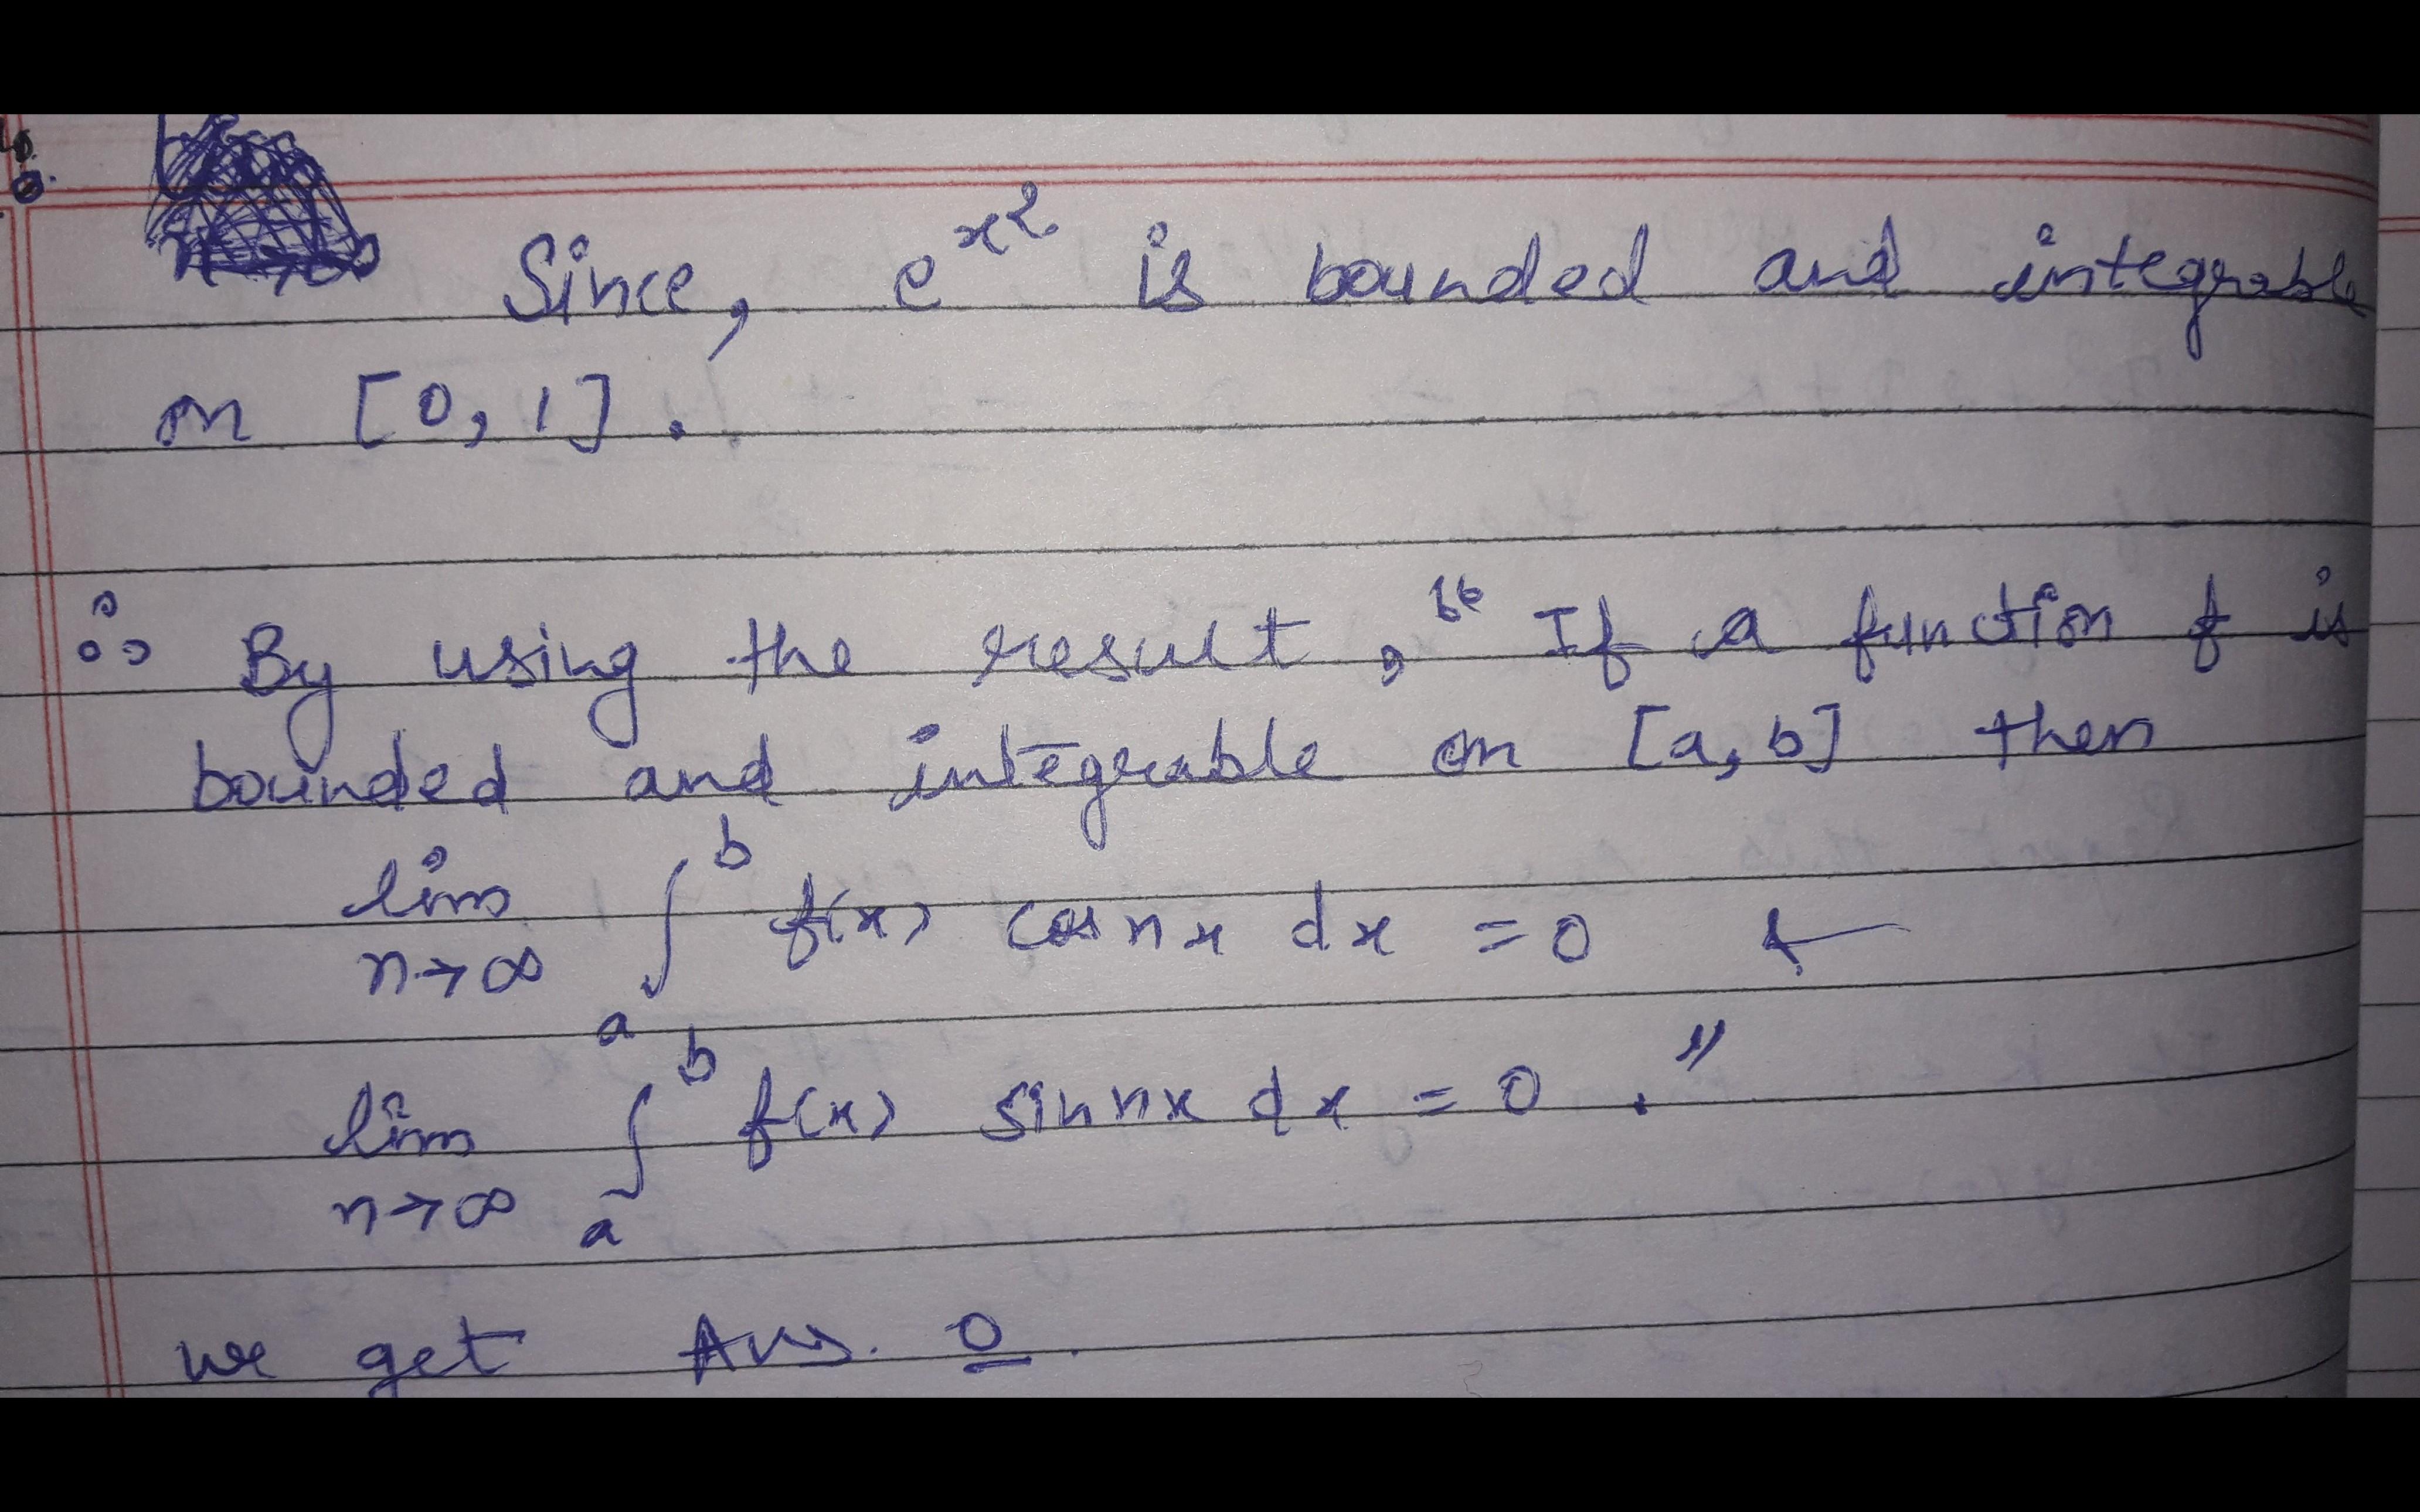 n→∞ Since, e^x² is bounded and integrable
on [0, 1].
∴ By using the result, "If a function f is
bounded and integrable on [a, b] then
lim n→∞ ∫_a^b f(x) cos nx dx = 0 ←
lim n→∞ ∫_a^b f(x) sin nx dx = 0 ."
we get Ans. 0.